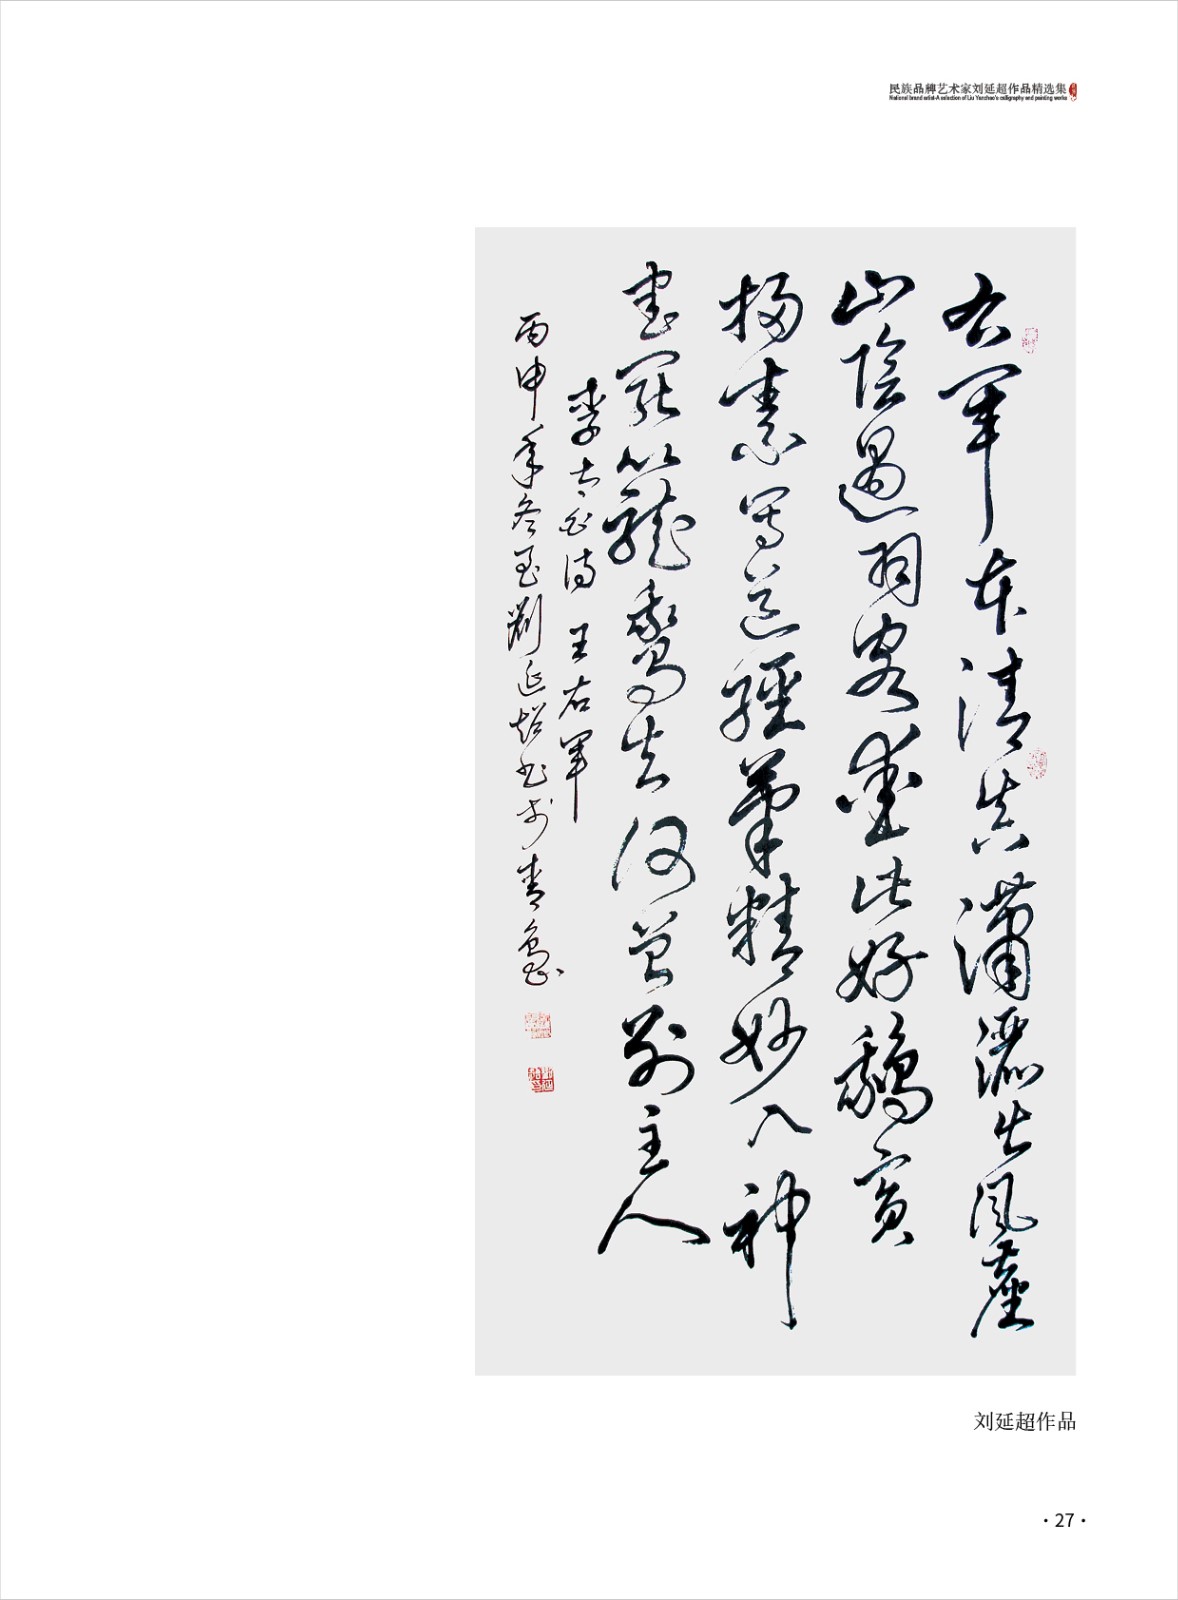 民族品牌艺术家刘延超作品精选集
National brand artist-A selection of Liu Yanchao's calligraphy and painting works
右軍本清真瀟灑出風塵
山陰遇羽客愛此好鵝賓
掃素寫道經筆精妙入神
書罷籠鵞去何曾別主人
李太白詩 王右軍
丙申年冬至劉延超書於青島
刘延超作品
·27·